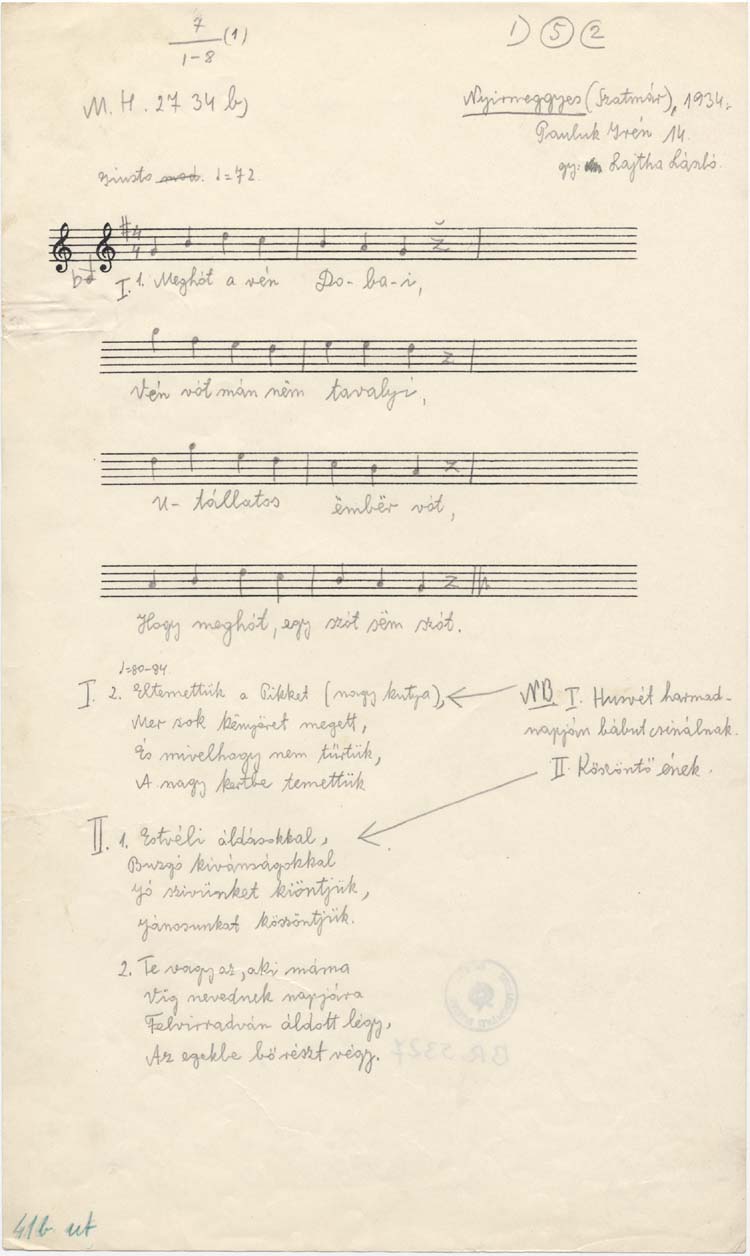 7
1-8 (1)
1) 5 2
M. H. 27 34 b)
Nyirmeggyes (Szatmár), 1934.
Pauluk Irén 14.
gy: Lajtha László.
giusto mod. ♩=72.
4
4
I. 1. Meghót a vén Do-ba-i,
Vén vót mán nëm tavalyi,
U-tállatos ëmbër vót,
Hogy meghót, egy szót sëm szót.
♩=80-84
I. 2. Eltemettük a Pikket (nagy kutya),
Mer sok kënyeret megett,
És mivelhogy nem türtük,
A nagy kertbe temettük
NB I. Husvét harmad-
napján bábut csinálnak.
II. Köszöntő ének.
II. 1. Estvéli áldásokkal,
Buzgó kivánságokkal
Jó szivünket kiöntjük,
Jánosunkat köszöntjük.
2. Te vagy az, aki máma
Víg nevednek napjára
Felvirradván áldott légy,
Az egekbe bő részt végy.
BR 5327
41b ut